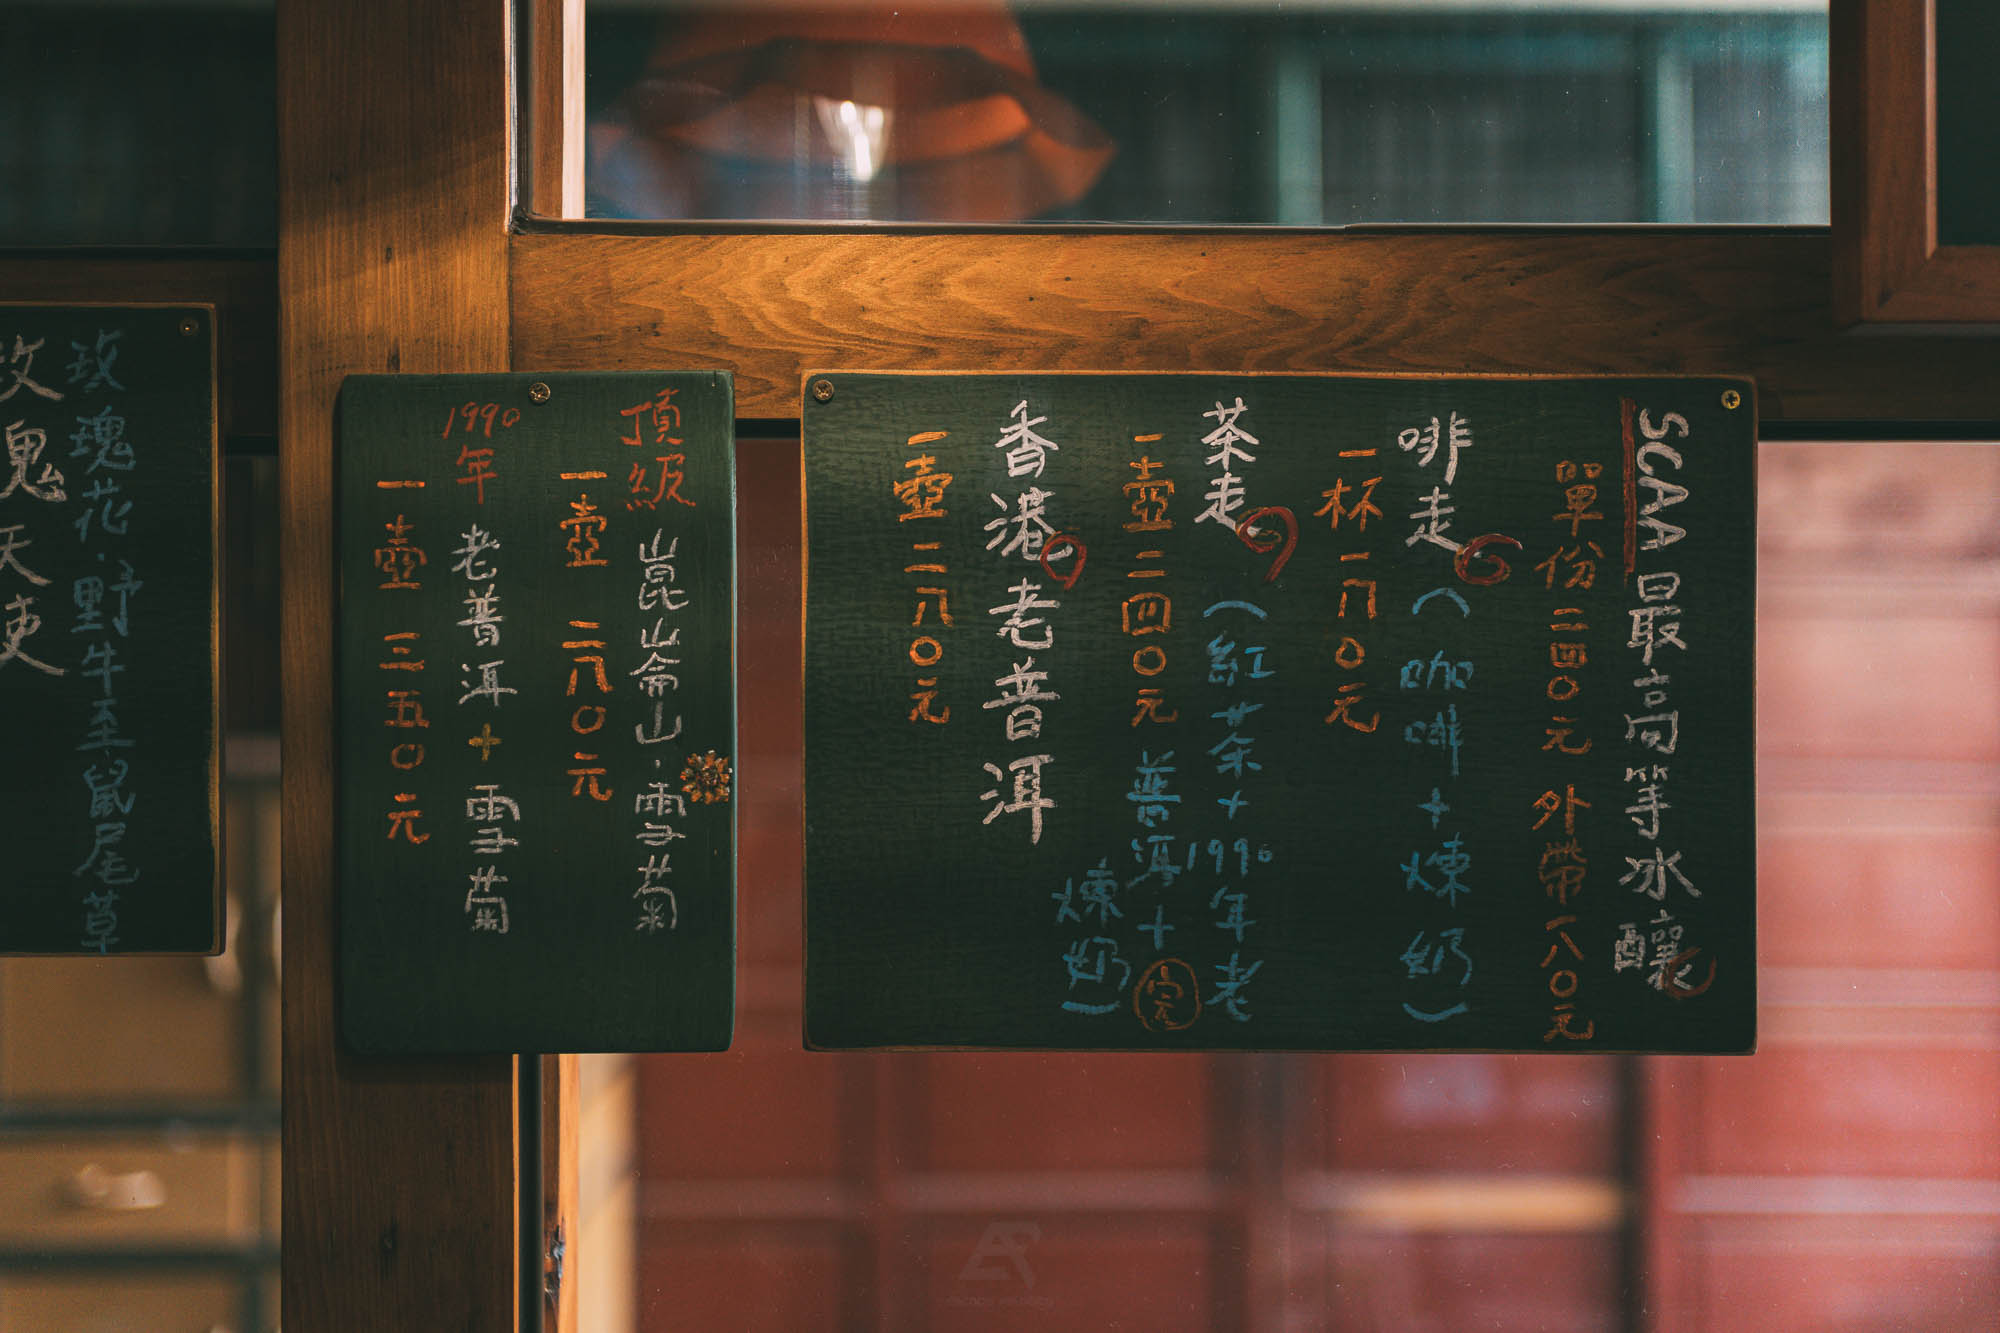 SCAA最高等冰釀
單份二四０元 外帶一八０元
啡走(咖啡+煉奶)
一杯一八０元
茶走(紅茶+1990年老
普洱+
煉奶)
完
一壺二四０元
香港老普洱
一壺二八０元
頂級 崑崙山·雪菊
一壺 二八０元
1990年 老普洱+雪菊
一壺 三五０元
玫瑰花·野牛至鼠尾草
玫瑰天使